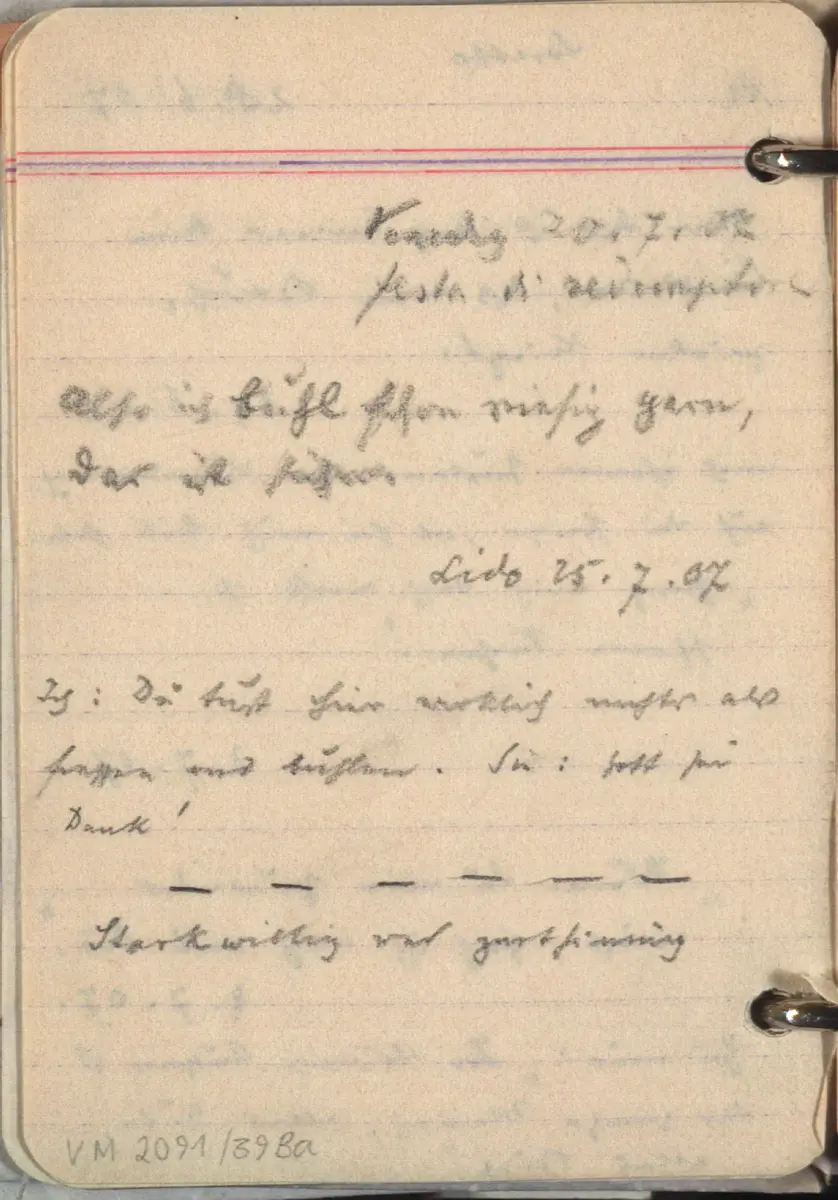 Venedig 20.7.07
festa di redemptore
Also ich buhl schon riesig gern,
das ist sicher.
Lido 25.7.07
Ich: Du tust hier wirklich nichts als
fressen und buhlen. Sie: Gott sei
Dank!
Starkwillig und zartsinnig
VM 2091/39Ba